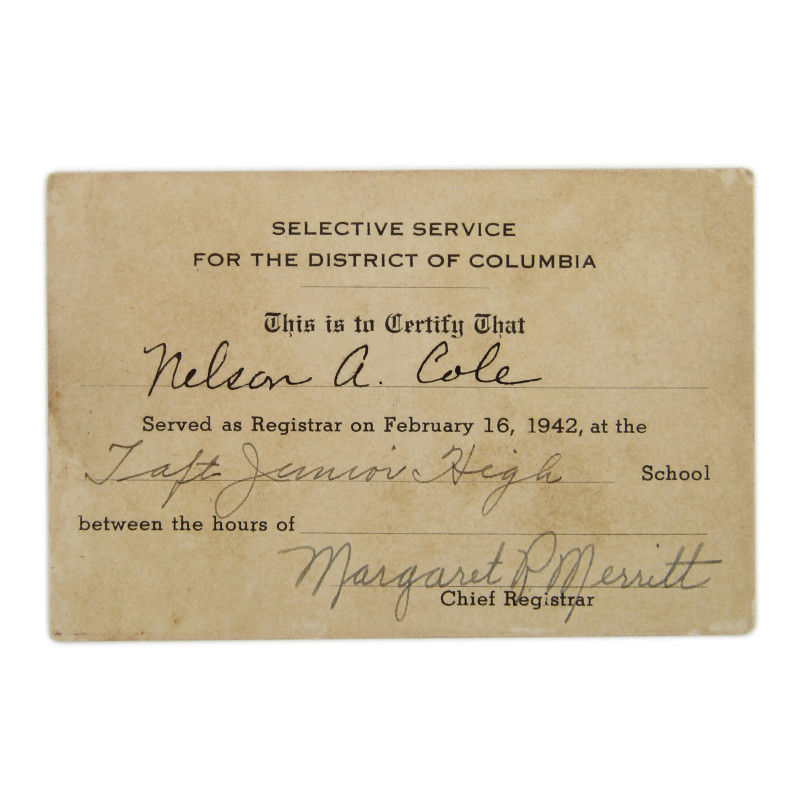 SELECTIVE SERVICE
FOR THE DISTRICT OF COLUMBIA
This is to Certify That
Nelson A. Cole
Served as Registrar on February 16, 1942, at the
Taft Junior High School
between the hours of
Margaret P. Merritt
Chief Registrar